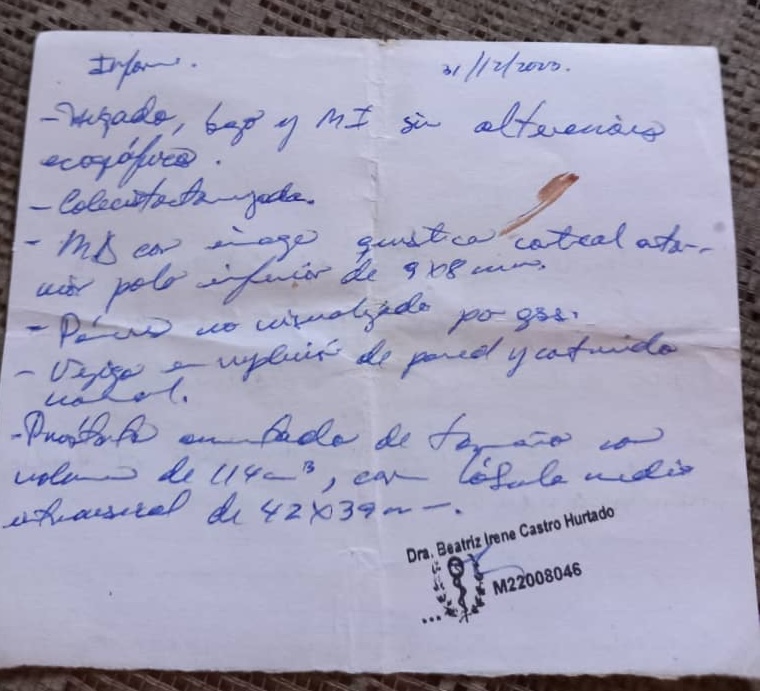 Informe. 31/12/2023.
- Hígado, bazo y MI sin alteraciones
ecográficas.
- Colecistectomizada.
- MD con imagen quística cortical
polo inferior de 9x8 mm.
- Páncreas no visualizado por gas.
- Vejiga en repleción de pared y contenido
normal.
- Próstata aumentada de tamaño con
volumen de 114 cm³, con lóbulo medio
intravesical de 42x39 mm.
Dra. Beatriz Irene Castro Hurtado
M22008046